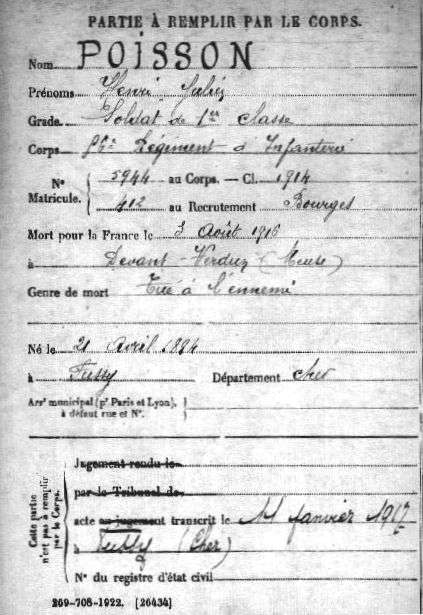 PARTIE À REMPLIR PAR LE CORPS.
Nom POISSON
Prénoms Henri Jules
Grade Soldat de 1re classe
Corps Régiment d'Infanterie
N° Matricule. 5944 au Corps. — Cl. 1904
412 au Recrutement Bourges
Mort pour la France le 3 Août 1916
à Devant-Verdun (Meuse)
Genre de mort Tué à l'ennemi
Né le 21 Avril 1884
à Fussy Département Cher
Arrt municipal (pr Paris et Lyon),
à défaut rue et N°.
Cette partie
n'est pas à remplir
par le Corps.
Jugement rendu le
par le Tribunal de
acte ou jugement transcrit le 11 janvier 1917
à Fussy (Cher)
N° du registre d'état civil
269-708-1922. [26434]